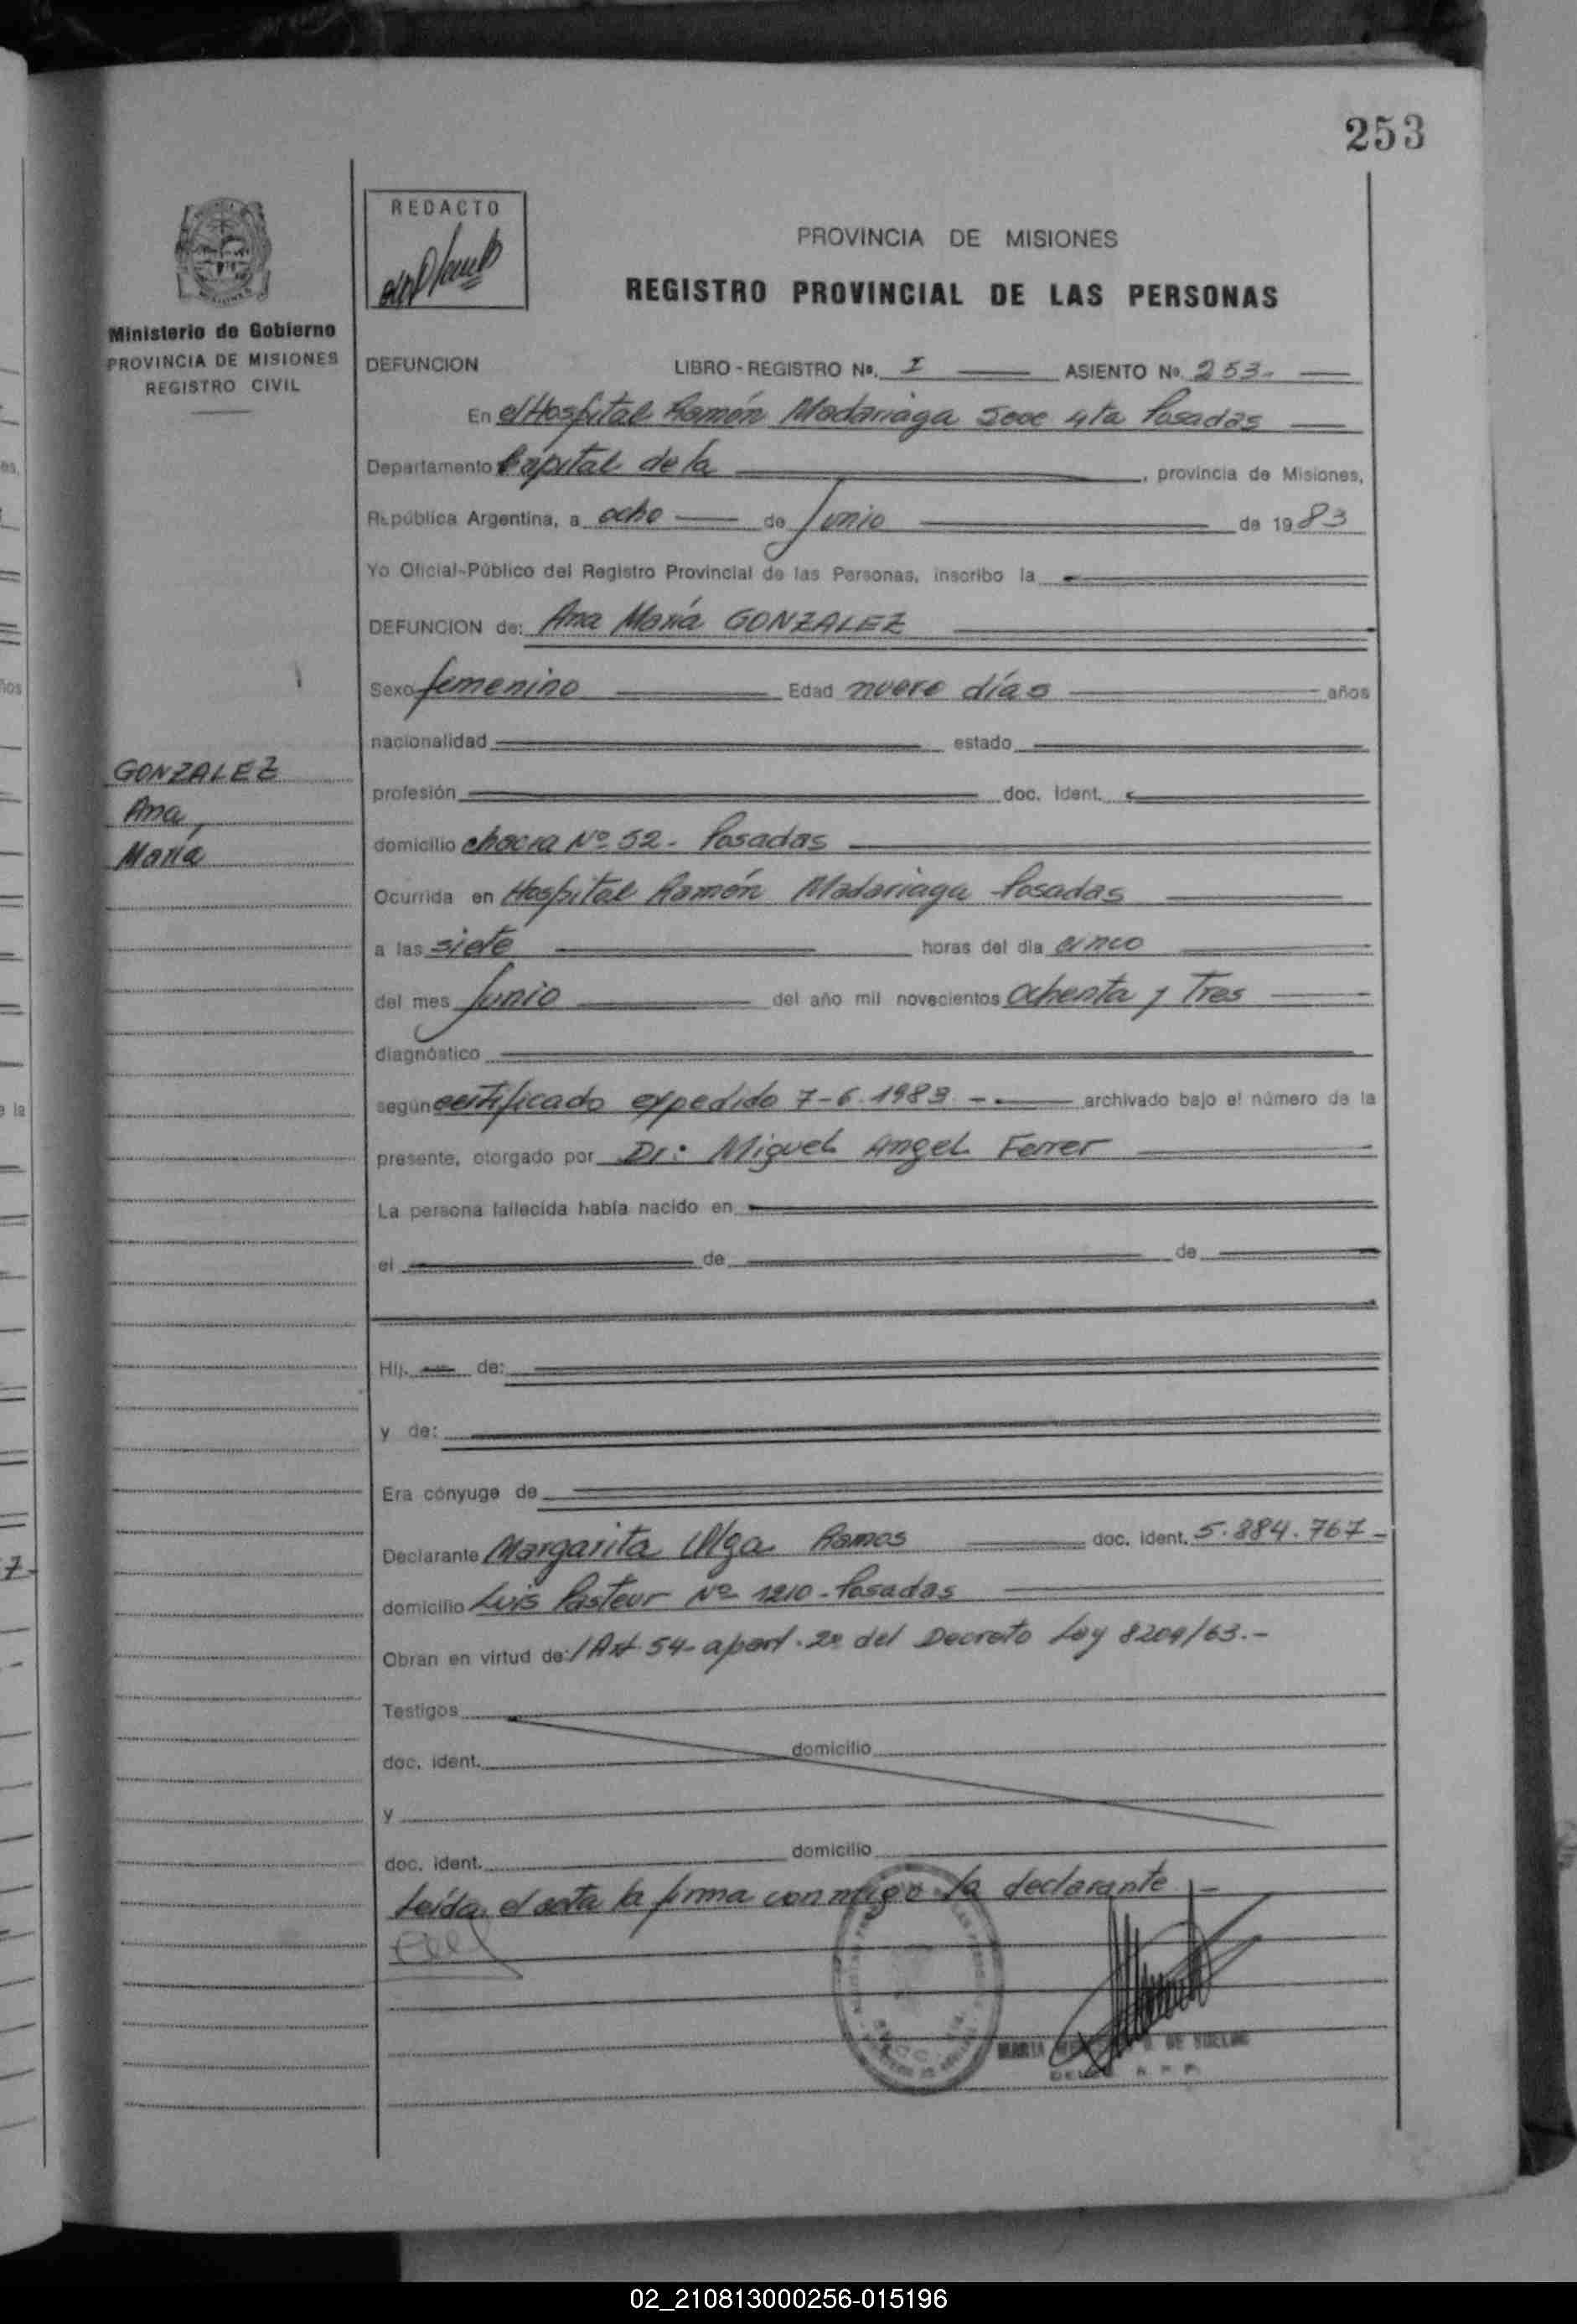 253
REDACTO
PROVINCIA DE MISIONES
REGISTRO PROVINCIAL DE LAS PERSONAS
Ministerio de Gobierno
PROVINCIA DE MISIONES
REGISTRO CIVIL
DEFUNCION LIBRO - REGISTRO No. I ASIENTO No. 253.
En el Hospital Ramón Madariaga Secc 4ta Posadas
Departamento Capital de la , provincia de Misiones,
República Argentina, a ocho de Junio de 1983
Yo Oficial-Público del Registro Provincial de las Personas, inscribo la
DEFUNCION de: Ana María GONZALEZ
Sexo femenino Edad nueve días años
nacionalidad estado
GONZALEZ
Ana
María
profesión doc. ident.
domicilio chacra Nº 52 - Posadas
Ocurrida en Hospital Ramón Madariaga Posadas
a las siete horas del día cinco
del mes Junio del año mil novecientos ochenta y Tres
diagnóstico
según certificado expedido 7-6-1983 - archivado bajo el número de la
presente, otorgado por Dr: Miguel Angel Ferrer
La persona fallecida había nacido en
el de de
Hij. de:
y de:
Era cónyuge de
Declarante Margarita Olga Ramos doc. ident. 5.884.767-
domicilio Luis Pasteur Nº 1210 - Posadas
Obran en virtud de: / Art. 54- apart. 2º del Decreto Ley 8204/63.-
Testigos
doc. ident. domicilio
y
doc. ident. domicilio
Leída el acta la firma conmigo la declarante.-
MARIA DE
R. P. P.
02_210813000256-015196